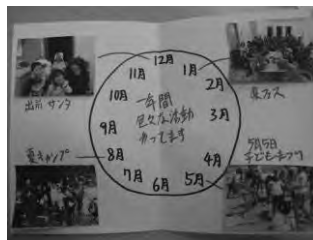 12月
1月
2月
3月
4月
5月
6月
7月
8月
9月
10月
11月
一年間
色々な活動
やってます
出前サンタ
フェス
夏キャンプ
5月5日
子どもまつり